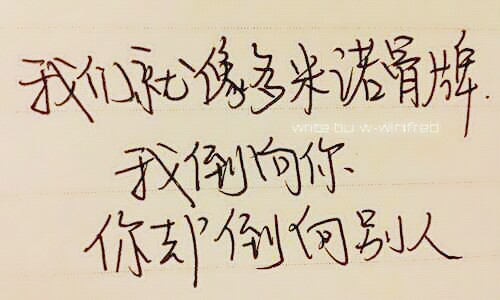 我们就像多米诺骨牌.
write bu w-winifred
我倒向你、
你却倒向别人